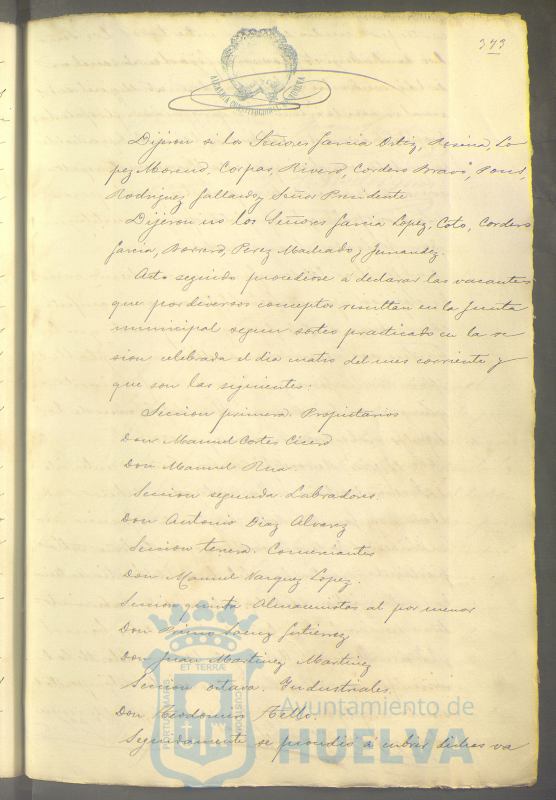 373
ALCALDIA CONSTITUCIONAL DE HUELVA
Dijeron si los Señores Garcia Ortiz, Resina, Lo
pez Moreno, Corpas, Rivero, Cordero Bravo, Pons,
Rodriguez Gallardo y Señor Presidente
Dijeron no los Señores Garcia Lopez, Coto, Cordero
Garcia, Borrero, Perez Machado y Fernandez.
Acto seguido procediose á declarar las vacantes
que por diversos conceptos resultan en la Junta
municipal segun sorteo practicado en la se
sion celebrada el dia cuatro del mes corriente y
que son las siguientes:
Seccion primera. Propietarios
Don Manuel Cortes Cicero
Don Manuel Rua
Seccion segunda Labradores
Don Antonio Diaz Alvarez
Seccion tercera. Comerciantes
Don Manuel Vazquez Lopez.
Seccion quinta. Almacenistas al por menor
Don Primo Saenz Gutierrez
Don Juan Martinez Martinez
Seccion octava. Industriales.
Don Teodomiro Tello.
Seguidamente se procedió á cubrir dichas va
PORTUS MARIS ET TERRÆ CUSTODIA
Ayuntamiento de
HUELVA